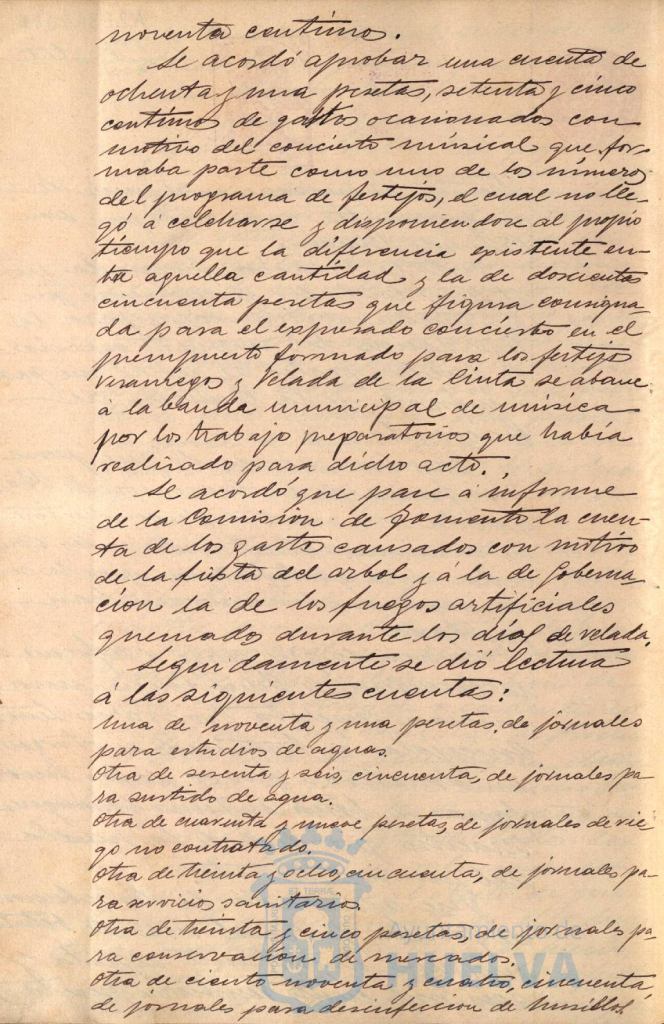 noventa centimos.
Se acordó aprobar una cuenta de
ochenta y una pesetas, setenta y cinco
centimos de gastos ocasionados con
motivo del concierto músical que for-
maba parte como uno de los números
del programa de festejos, el cual no lle-
gó á celebrarse y disponiendose al propio
tiempo que la diferencia existente en-
tre aquella cantidad y la de doscientas
cincuenta pesetas que figura consigna-
da para el expresado concierto en el
presupuesto formado para los festejos
veraniegos y Velada de la Cinta se abone
á la banda municipal de música
por los trabajo preparatorios que había
realizado para dicho acto.
Se acordó que pase á informe
de la Comisión de Fomento la cuen-
ta de los gastos causados con motivo
de la fiesta del arbol y á la de Goberna-
ción la de los fuegos artificiales
quemados durante los días de velada.
Seguidamente se dió lectura
á las siguientes cuentas:
Una de noventa y una pesetas, de jornales
para estudios de aguas.
Otra de sesenta y seis, cincuenta, de jornales pa-
ra surtido de agua.
Otra de cuarenta y nueve pesetas, de jornales de rie-
go no contratado.
Otra de treinta y ocho, cincuenta, de jornales pa-
ra servicios sanitarios.
Otra de treinta y cinco pesetas, de jornales pa-
ra conservación de mercados.
Otra de ciento noventa y cuatro, cincuenta,
de jornales para desinfección de husillos.
Ayuntamiento de
HUELVA